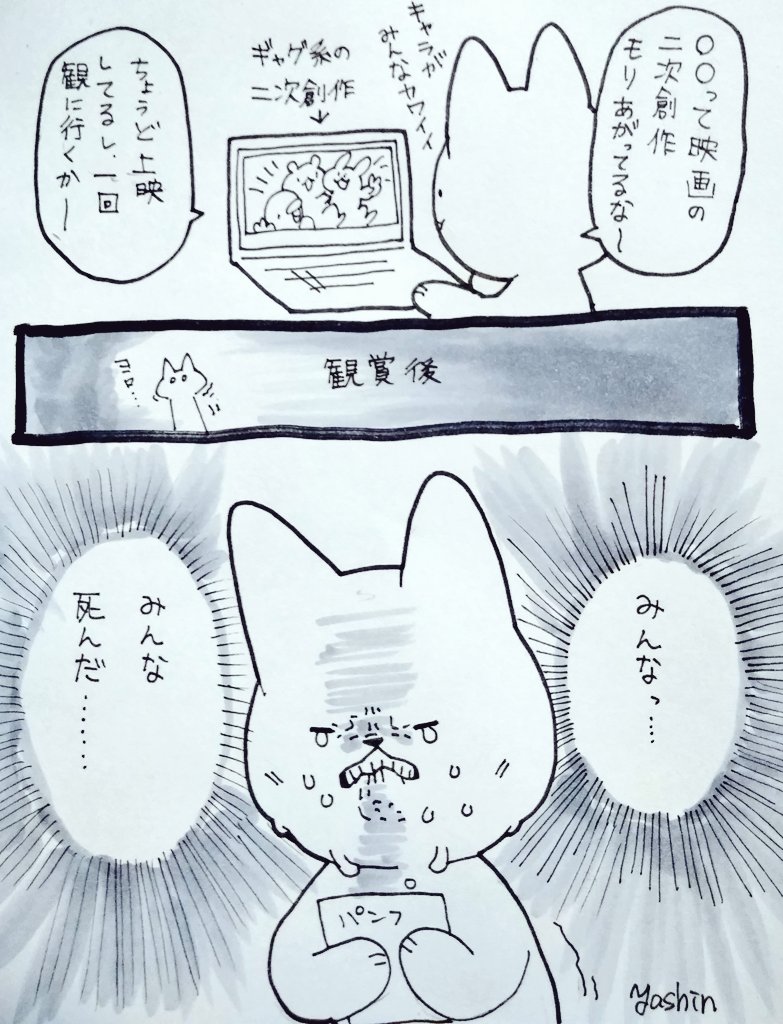 〇〇って映画の
二次創作
モリあがってるな〜
キャラが
みんなカワイイ
ギャグ系の
二次創作
↓
ちょうど上映
してるし、一回
観に行くかー
観賞後
みんなっ…
みんな
死んだ………
パンフ
Yashin